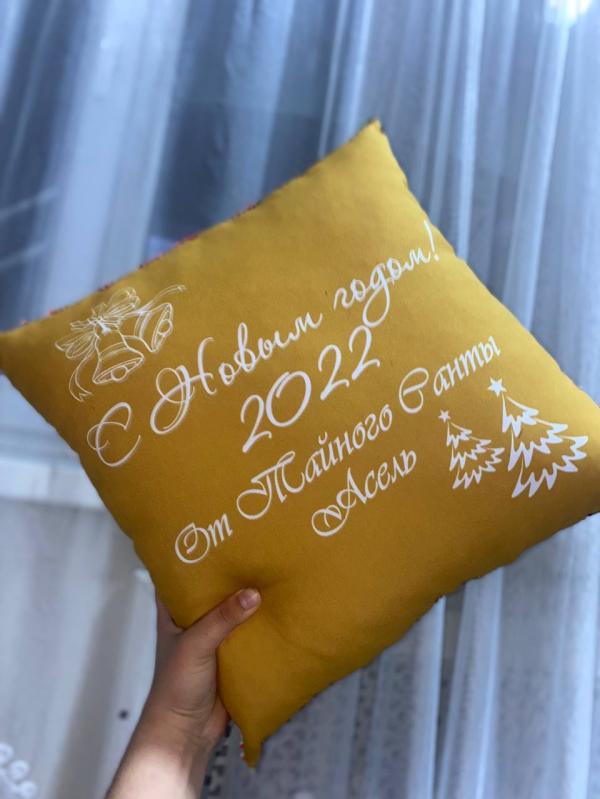 С Новым годом!
2022
От Тайного Санты
Асель